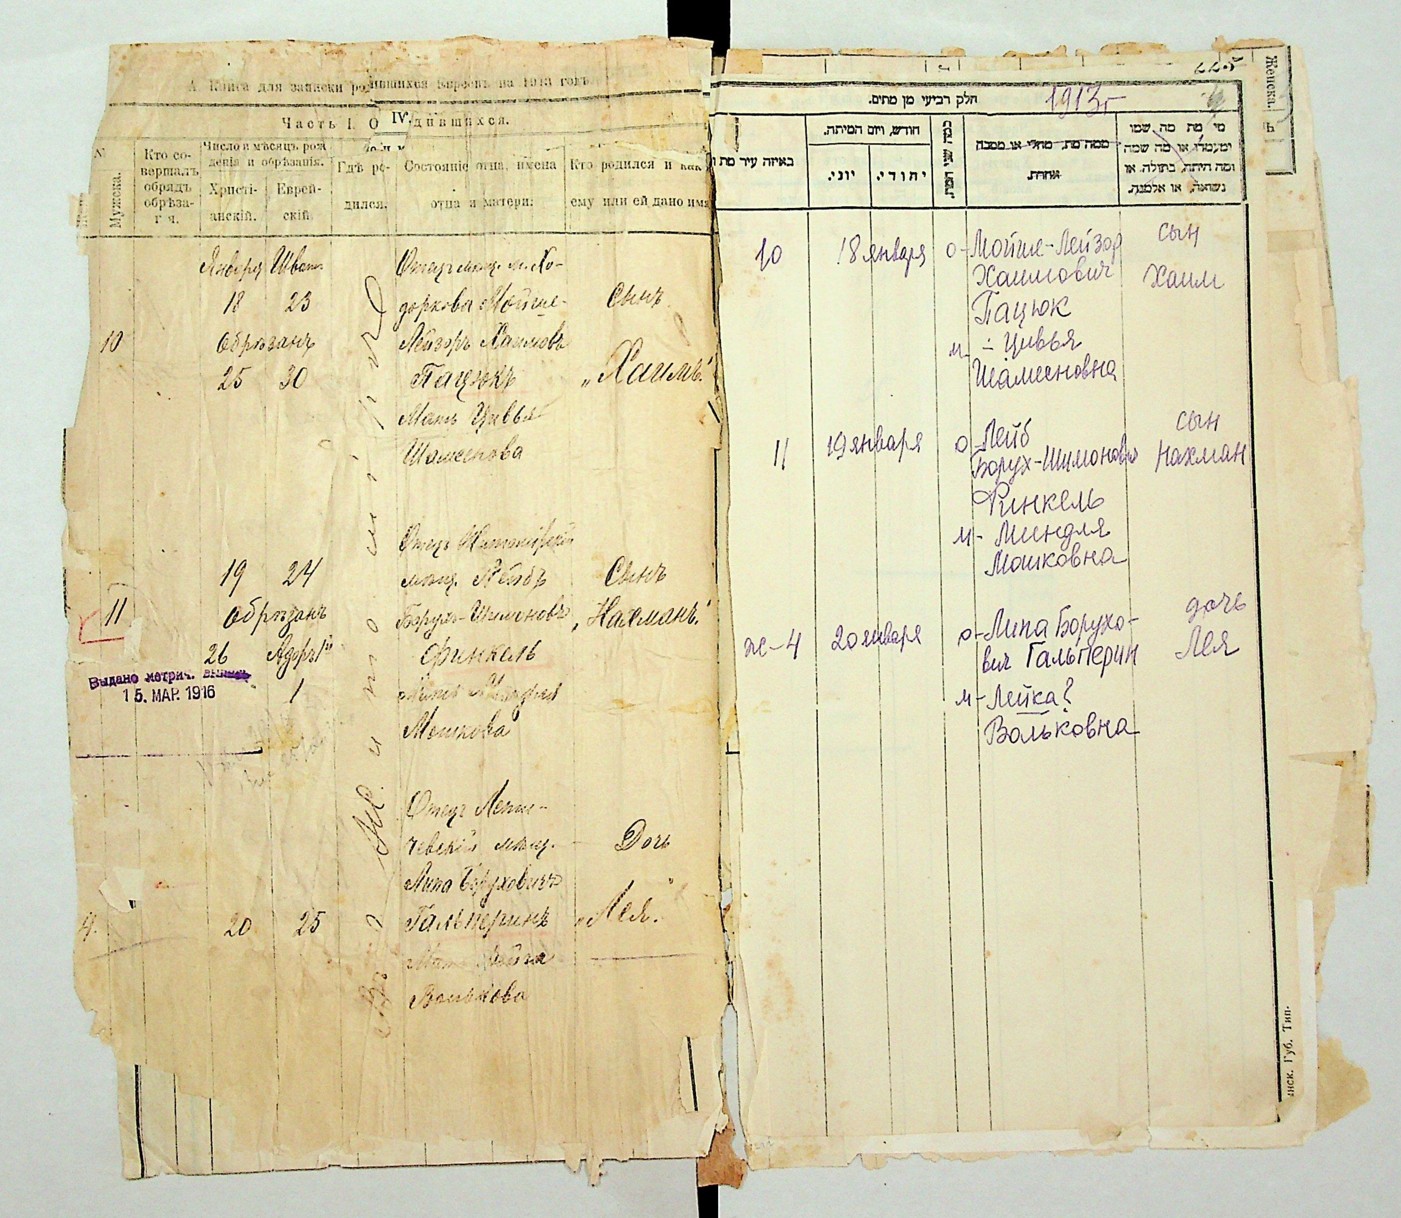 А. Книга для записки родившихся Евреевъ на 1913 годъ
Часть I. О родившихся.
IV.
№
Мужеска.
Кто совершалъ обрядъ обрѣзанія.
Число и мѣсяцъ рожденія и обрѣзанія.
Христіанскій.
Еврейскій.
Гдѣ родился.
Состояніе отца, имена отца и матери.
Кто родился и какое ему или ей дано имя
10
Январь Шватъ
18 23
обрѣзанъ
25 30
Отецъ мѣщ. м. Хо-
доркова Мойше-
Лейзоръ Хаимовъ
Пацюкъ
Мать Цивья
Шамсонова
Сынъ
„Хаимъ"
11
19 24
обрѣзанъ
26 Адоръ 1й
1
Отецъ Житомірскій
мѣщ. Лейбъ
Борухъ-Шимоновъ
Финкель
Мать Миндля
Мошкова
Сынъ
„Нахманъ"
Выдано метрич.
15. МАР. 1916
4.
20 25
Отецъ Лети-
чевскій мѣщ.
Липа Боруховичъ
Гальперинъ
Мать Лейка
Волькова
Дочь
„Лея"
Въ г. Житомірѣ
225
Женска.
חלק רביעי מן מתים.
1913г
באיזה עיר מת
חודש, ויום המיתה.
יוני.
יהודי.
כמה שני המת.
ממה מת, מחלי או מסבה אחרת.
מי מת מה שמו
ומעמדו או מה שמה
ומה היתה, בתולה או
נשואה, או אלמנה.
10 18 января о- Мойше-Лейзор сын
Хаимович Хаим
Пацюк
м- Цивья
Шамсоновна
11 19 января о- Лейб сын
Борух-Шимонович Нахман
Финкель
м- Миндля
Мошковна
ж-4 20 января о- Липа Борухо- дочь
вич Гальперин Лея
м- Лейка?
Вольковна
нск. Губ. Тип.